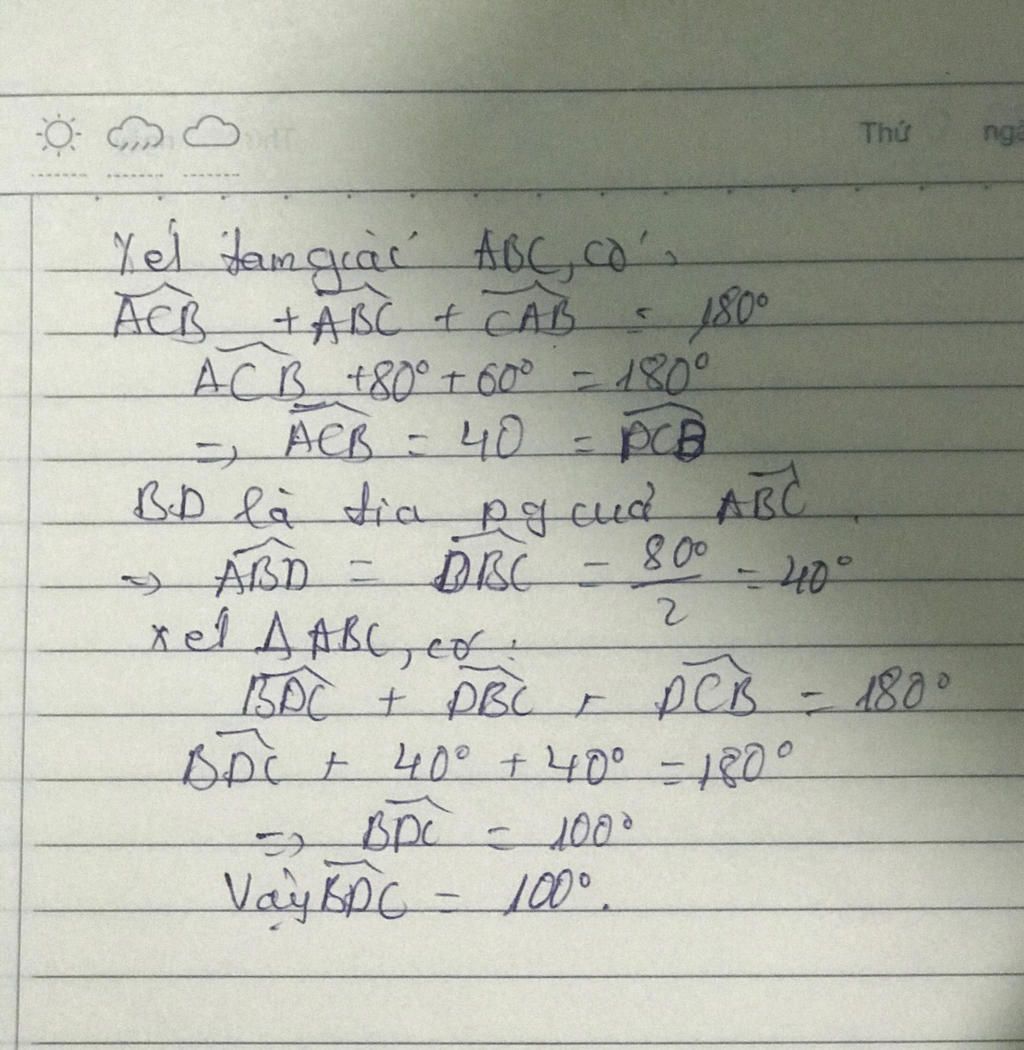 Thứ ngà
Xét tam giác ABC, có,
ACB + ABC + CAB = 180°
ACB + 80° + 60° = 180°
=> ACB = 40 = DCB
BD là tia pg của ABC.
=> ABD = DBC = 80°/2 = 40°
xét Δ ABC, có:
BDC + DBC + DCB = 180°
BDC + 40° + 40° = 180°
=> BDC = 100°
Vậy BDC = 100°.